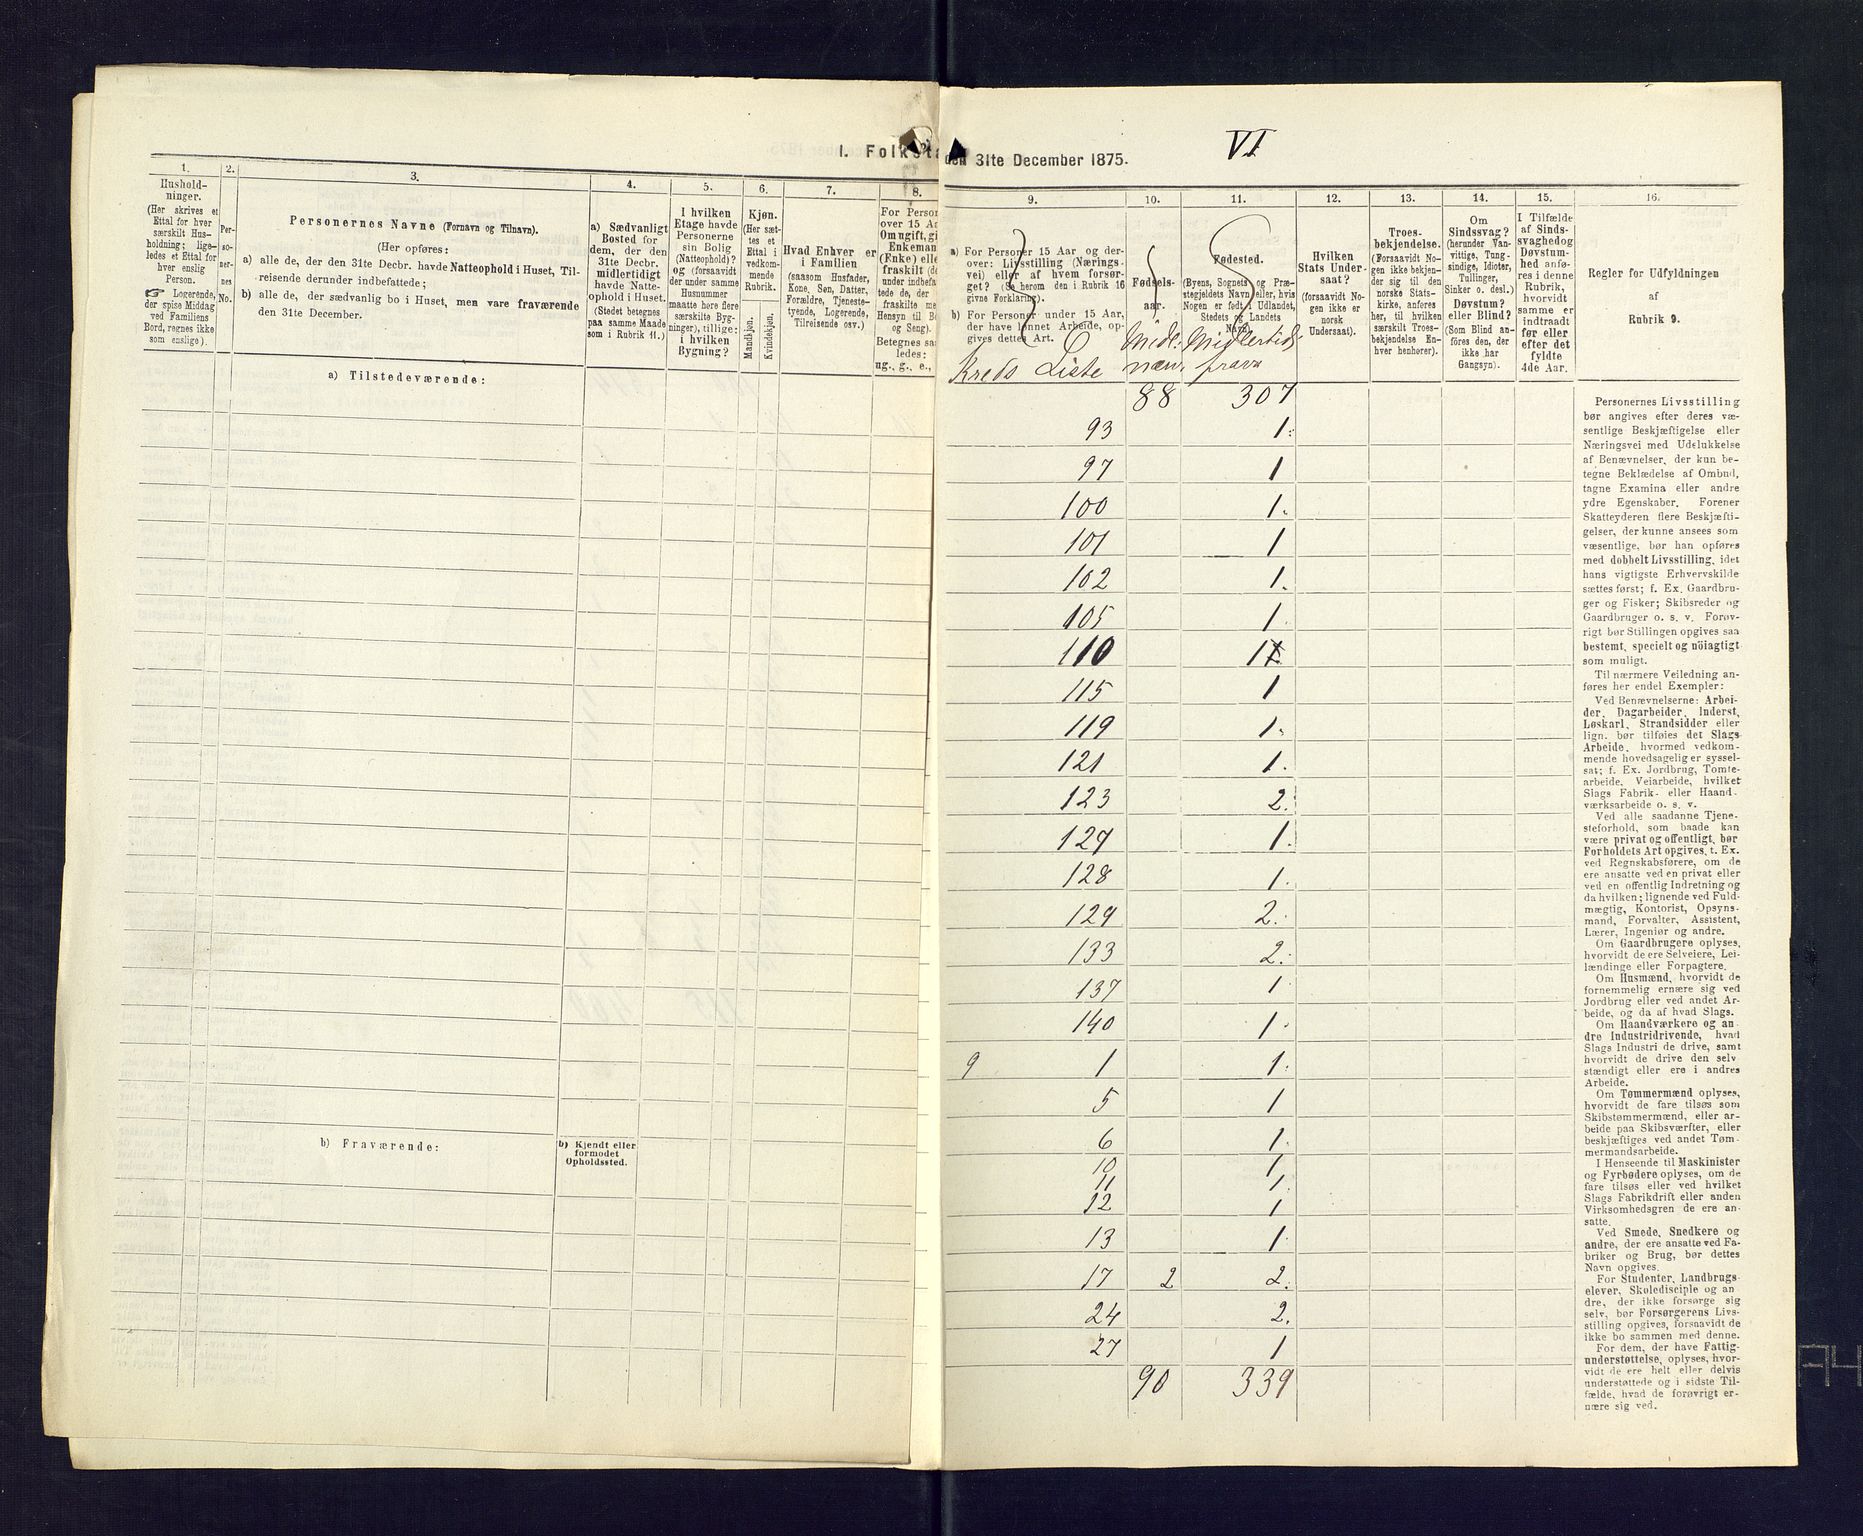 I. Folketæ
den 31te December 1875.
VI
1.
Hushold-
ninger.
(Her skrives et
Ettal for hver
særskilt Hus-
holdning; lige-
ledes et Ettal for
hver enslig
Person.
☞ Logerende,
der spise Middag
ved Familiens
Bord, regnes ikke
som enslige).
2.
Per-
so-
ner-
nes
No.
3.
Personernes Navne (Fornavn og Tilnavn).
(Her opføres:
a) alle de, der den 31te Decbr. havde Natteophold i Huset, Til-
reisende derunder indbefattede;
b) alle de, der sædvanlig bo i Huset, men vare fraværende
den 31te December.
4.
a) Sædvanligt
Bosted for
dem, der den
31te Decbr.
midlertidigt
havde Natte-
ophold i Huset.
(Stedet betegnes
paa samme Maade
som i Rubrik 11.)
5.
I hvilken
Etage havde
Personerne
sin Bolig
(Natteophold)?
og (forsaavidt
der under samme
Husnummer
maatte høre flere
særskilte Byg-
ninger), tillige:
i hvilken
Bygning?
6.
Kjøn.
(Her sæt-
tes et
Ettal i
vedkom-
mende
Rubrik.
Mandkjøn.
Kvindekjøn.
7.
Hvad Enhver er
i Familien
(saasom Husfader,
Kone, Søn, Datter,
Forældre, Tjeneste-
tyende, Logerende,
Tilreisende osv.)
8.
For Person
over 15 Aa
Om ugift, gi
Enkeman
(Enke) elle
fraskilt (d
under indbefa
tede de, der
fraskilte me
Hensyn til Bo
og Seng).
Betegnes saa
ledes:
ug., g., e.,
9.
a) For Personer 15 Aar og der-
over: Livsstilling (Nærings-
vei) eller af hvem forsør-
get? (Se herom den i Rubrik 16
givne Forklaring).
b) For Personer under 15 Aar,
der have lønnet Arbeide, op-
gives dettes Art.
Kreds Liste
10.
Fødsels-
aar.
Midl.
nær.
11.
Fødested.
(Byens, Sognets og Præ-
stegjeldets Navn eller, hvis
Nogen er født i Udlandet,
Stedets og Landets
Navn).
Midlertids
frava
12.
Hvilken
Stats Under-
saat?
(forsaavidt No-
gen ikke er
norsk
Undersaat).
13.
Troes-
bekjendelse.
(Forsaavidt No-
gen ikke bekjen-
der sig til den
norske Stats-
kirke, anføres
her, til hvilken
særskilt Troes-
bekjendelse En-
hver henhører).
14.
Om
Sindssvag?
(herunder Van-
vittige, Tung-
sindige, Idioter,
Tullinger,
Sinker o. desl.)
Døvstum?
eller Blind?
(Som Blind an-
føres den, der
ikke har
Gangsyn).
15.
I Tilfælde
af Sinds-
svaghed og
Døvstum-
hed anfø-
res i denne
Rubrik,
hvorvidt
samme er
indtraadt
før eller
efter det
fyldte
4de Aar.
16.
Regler for Udfyldningen
af
Rubrik 9.
a) Tilstedeværende:
88 307
93 1.
97 1
100 1.
101 1
102 1.
105 1.
110
115 1
119 1.
121 1.
123 2.
127 1.
128 1.
129 2.
133 2.
137 1
140 1.
9 1 1.
5 1
6 1.
10 1.
11 1.
12 1
13 1
17 2 2.
24 2.
27 1
90 339
b) Fraværende:
b) Kjendt eller
formodet
Opholdssted.
Personernes Livsstilling
bør angives efter deres væ-
sentlige Beskjæftigelse eller
Næringsvei med Udelukkelse
af Benævnelser, der kun be-
tegne Beklædelse af Ombud,
tagne Examina eller andre
ydre Egenskaber. Forener
Skatteyderen flere Beskjæfti-
gelser, der kunne ansees som
væsentlige, bør han opføres
med dobbelt Livsstilling, idet
hans vigtigste Erhvervskilde
sættes først; f. Ex. Gaardbru-
ger og Fisker; Skibsreder og
Gaardbruger o. s. v. Forøv-
rigt bør Stillingen opgives saa
bestemt, specielt og nöiagtigt
som muligt.
Til nærmere Veiledning an-
føres her endel Exempler:
Ved Benævnelserne: Arbei-
der, Dagarbeider, Inderst,
Løskarl, Strandsidder eller
lign. bør tilføies det Slags
Arbeide, hvormed vedkom-
mende hovedsagelig er syssel-
sat; f. Ex. Jordbrug, Tomte-
arbeide, Veiarbeide, hvilket
Slags Fabrik- eller Haand-
værksarbeide o. s. v.
Ved alle saadanne Tjene-
steforhold, som baade kan
være privat og offentligt, bør
Forholdets Art opgives, t. Ex.
ved Regnskabsførere, om de
ere ansatte ved en privat eller
ved en offentlig Indretning og
da hvilken; lignende ved Fuld-
mægtig, Kontorist, Opsyns-
mand, Forvalter, Assistent,
Lærer, Ingeniør og andre.
Om Gaardbrugere oplyses,
hvorvidt de ere Selveiere, Lei-
lændinge eller Forpagtere.
Om Husmænd, hvorvidt de
fornemmelig ernære sig ved
Jordbrug eller ved andet Ar-
beide, og da af hvad Slags.
Om Haandværkere og an-
dre Industridrivende, hvad
Slags Industri de drive, samt
hvorvidt de drive den selv
stændigt eller ere i andres
Arbeide.
Om Tømmermænd oplyses,
hvorvidt de fare tilsøs som
Skibstømmermænd, eller ar-
beide paa Skibsværfter, eller
beskjæftiges ved andet Tøm-
mermandsarbeide.
I Henseende til Maskinister
og Fyrbødere oplyses, om de
fare tilsøs eller ved hvilket
Slags Fabrikdrift eller anden
Virksomhedsgren de ere an-
satte.
Ved Smede, Snedkere og
andre, der ere ansatte ved Fa-
briker og Brug, bør dettes
Navn opgives.
For Studenter, Landbrugs-
elever, Skoledisciple og an-
dre, der ikke forsørge sig
selv, bør Forsørgerens Livs-
stilling opgives, forsaavidt de
ikke bo sammen med denne.
For dem, der have Fattig-
understøttelse, oplyses, hvor-
vidt de ere helt eller delvis
understøttede og i sidste Til-
fælde, hvad de forøvrigt er-
nære sig ved.